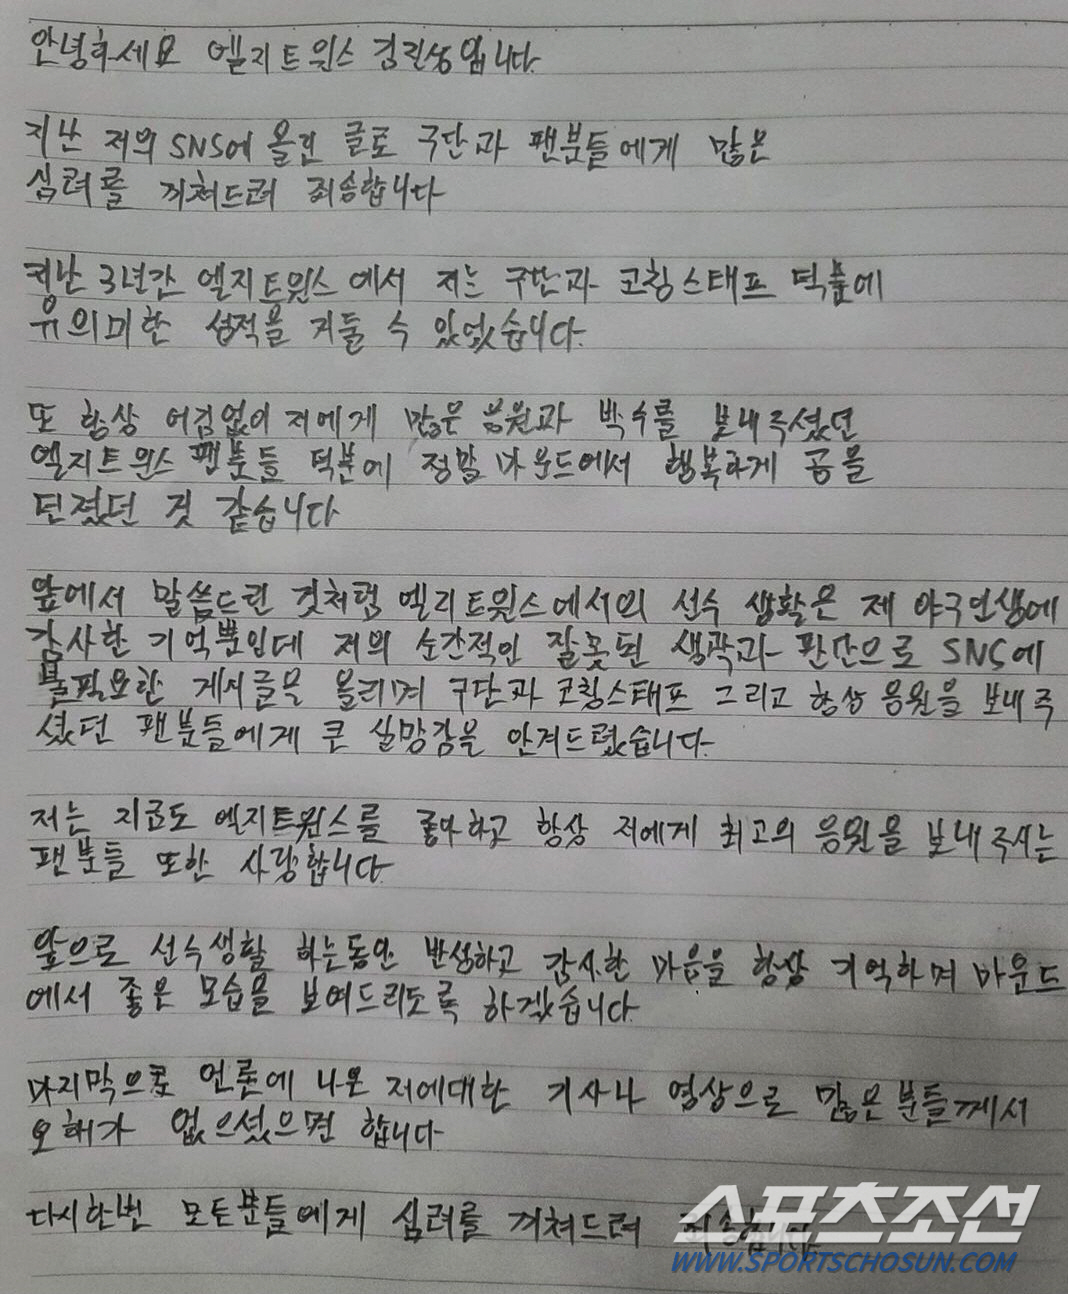 안녕하세요 엘지트윈스 김진성입니다.
지난 저의 SNS에 올린 글로 구단과 팬분들에게 많은
심려를 끼쳐드려 죄송합니다
지난 3년간 엘지트윈스에서 저는 구단과 코칭스태프 덕분에
유의미한 성적을 거둘 수 있었습니다.
또 항상 어김없이 저에게 많은 응원과 박수를 보내주셨던
엘지트윈스 팬분들 덕분에 정말 마운드에서 행복하게 공을
던졌던 것 같습니다
앞에서 말씀드린 것처럼 엘지트윈스에서의 선수 생활은 제 야구인생에
감사한 기억뿐인데 저의 순간적인 잘못된 생각과 판단으로 SNS에
불필요한 게시글을 올리며 구단과 코칭스태프 그리고 항상 응원을 보내주
셨던 팬분들에게 큰 실망감을 안겨드렸습니다.
저는 지금도 엘지트윈스를 좋아하고 항상 저에게 최고의 응원을 보내주시는
팬분들 또한 사랑합니다
앞으로 선수생활 하는동안 반성하고 감사한 마음을 항상 기억하며 마운드
에서 좋은 모습을 보여드리도록 하겠습니다.
마지막으로 언론에 나온 저에대한 기사나 영상으로 많은분들께서
오해가 없으셨으면 합니다.
다시한번 모든분들에게 심려를 끼쳐드려 죄송합니다
스포츠조선
WWW.SPORTSCHOSUN.COM